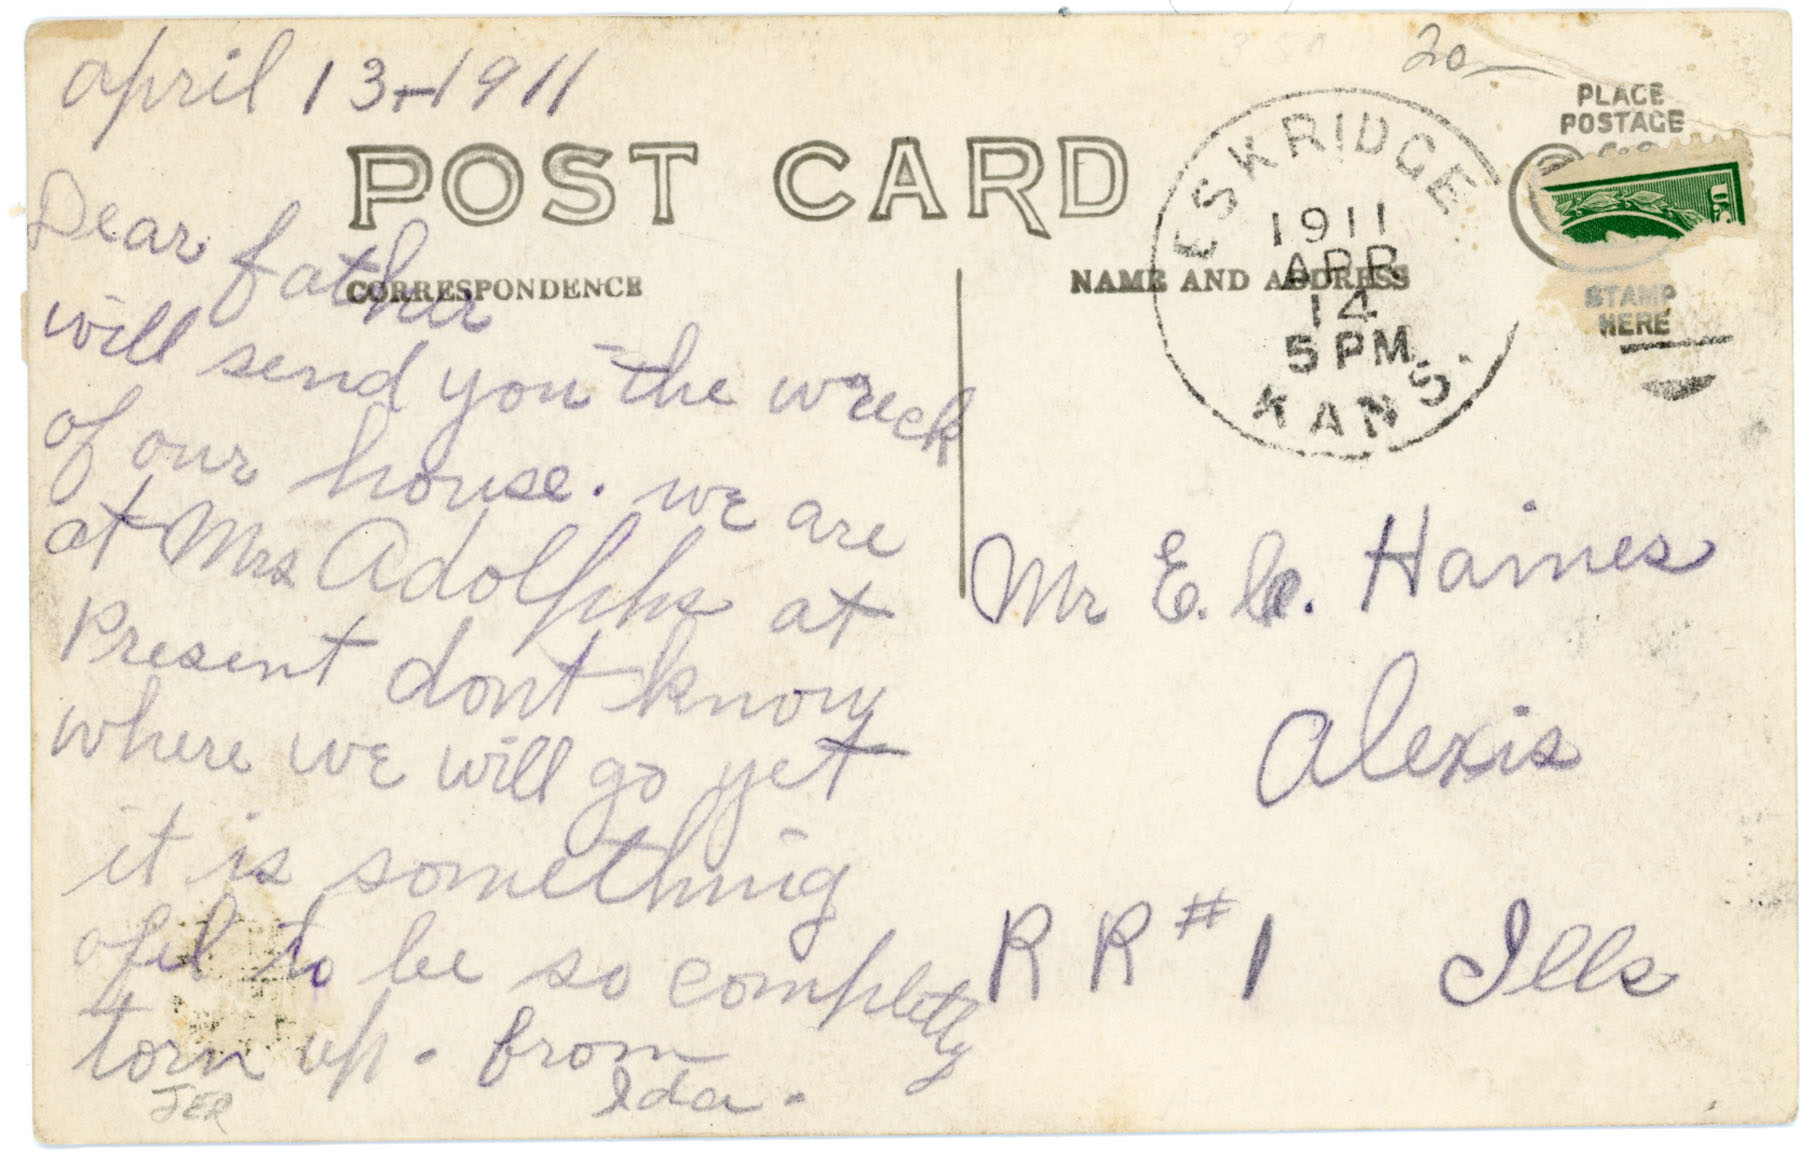 april 13-1911
POST CARD
CORRESPONDENCE
Dear father
will send you the wreck
of our house. we are
at Mrs Adolphs at
Present dont know
where we will go yet
it is something
afel to be so completly
torn up. from
Ida.
JER
20-
350
PLACE
POSTAGE
STAMP
HERE
ESKRIDGE
1911
APR
14
5 PM
KANS.
NAME AND ADDRESS
Mr E. C. Haines
Alexis
RR #1 Ills